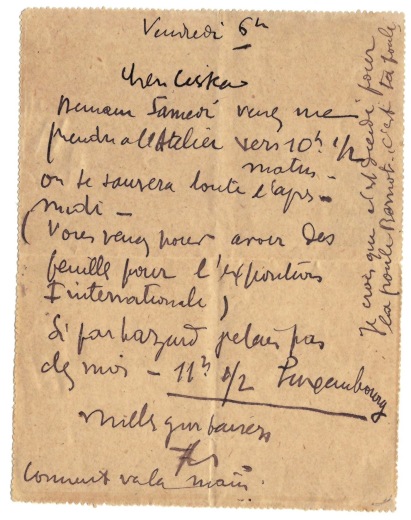 Vendredi 6h
Demain Samedi venez me
prendre a l'Atelier vers 10h 1/2
matin -
on se sauvera toute l'après-
midi -
(Vous venez pour avoir des
feuille pour l'exposition
Internationale)
Si par hazard pas
11h 1/2 Luxembourg
Mille baisers
Comment va la main
Je crois que c'est pour
la poule